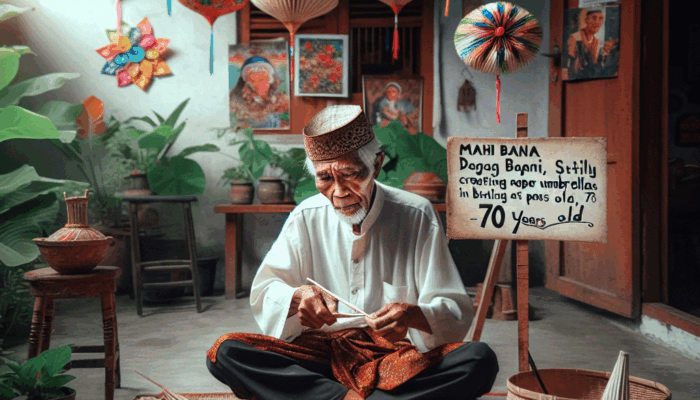 MAHI BANA
Dagag Bapni, Stily
creating pape umbrellas
in birling as pass old, 78
-70 years old